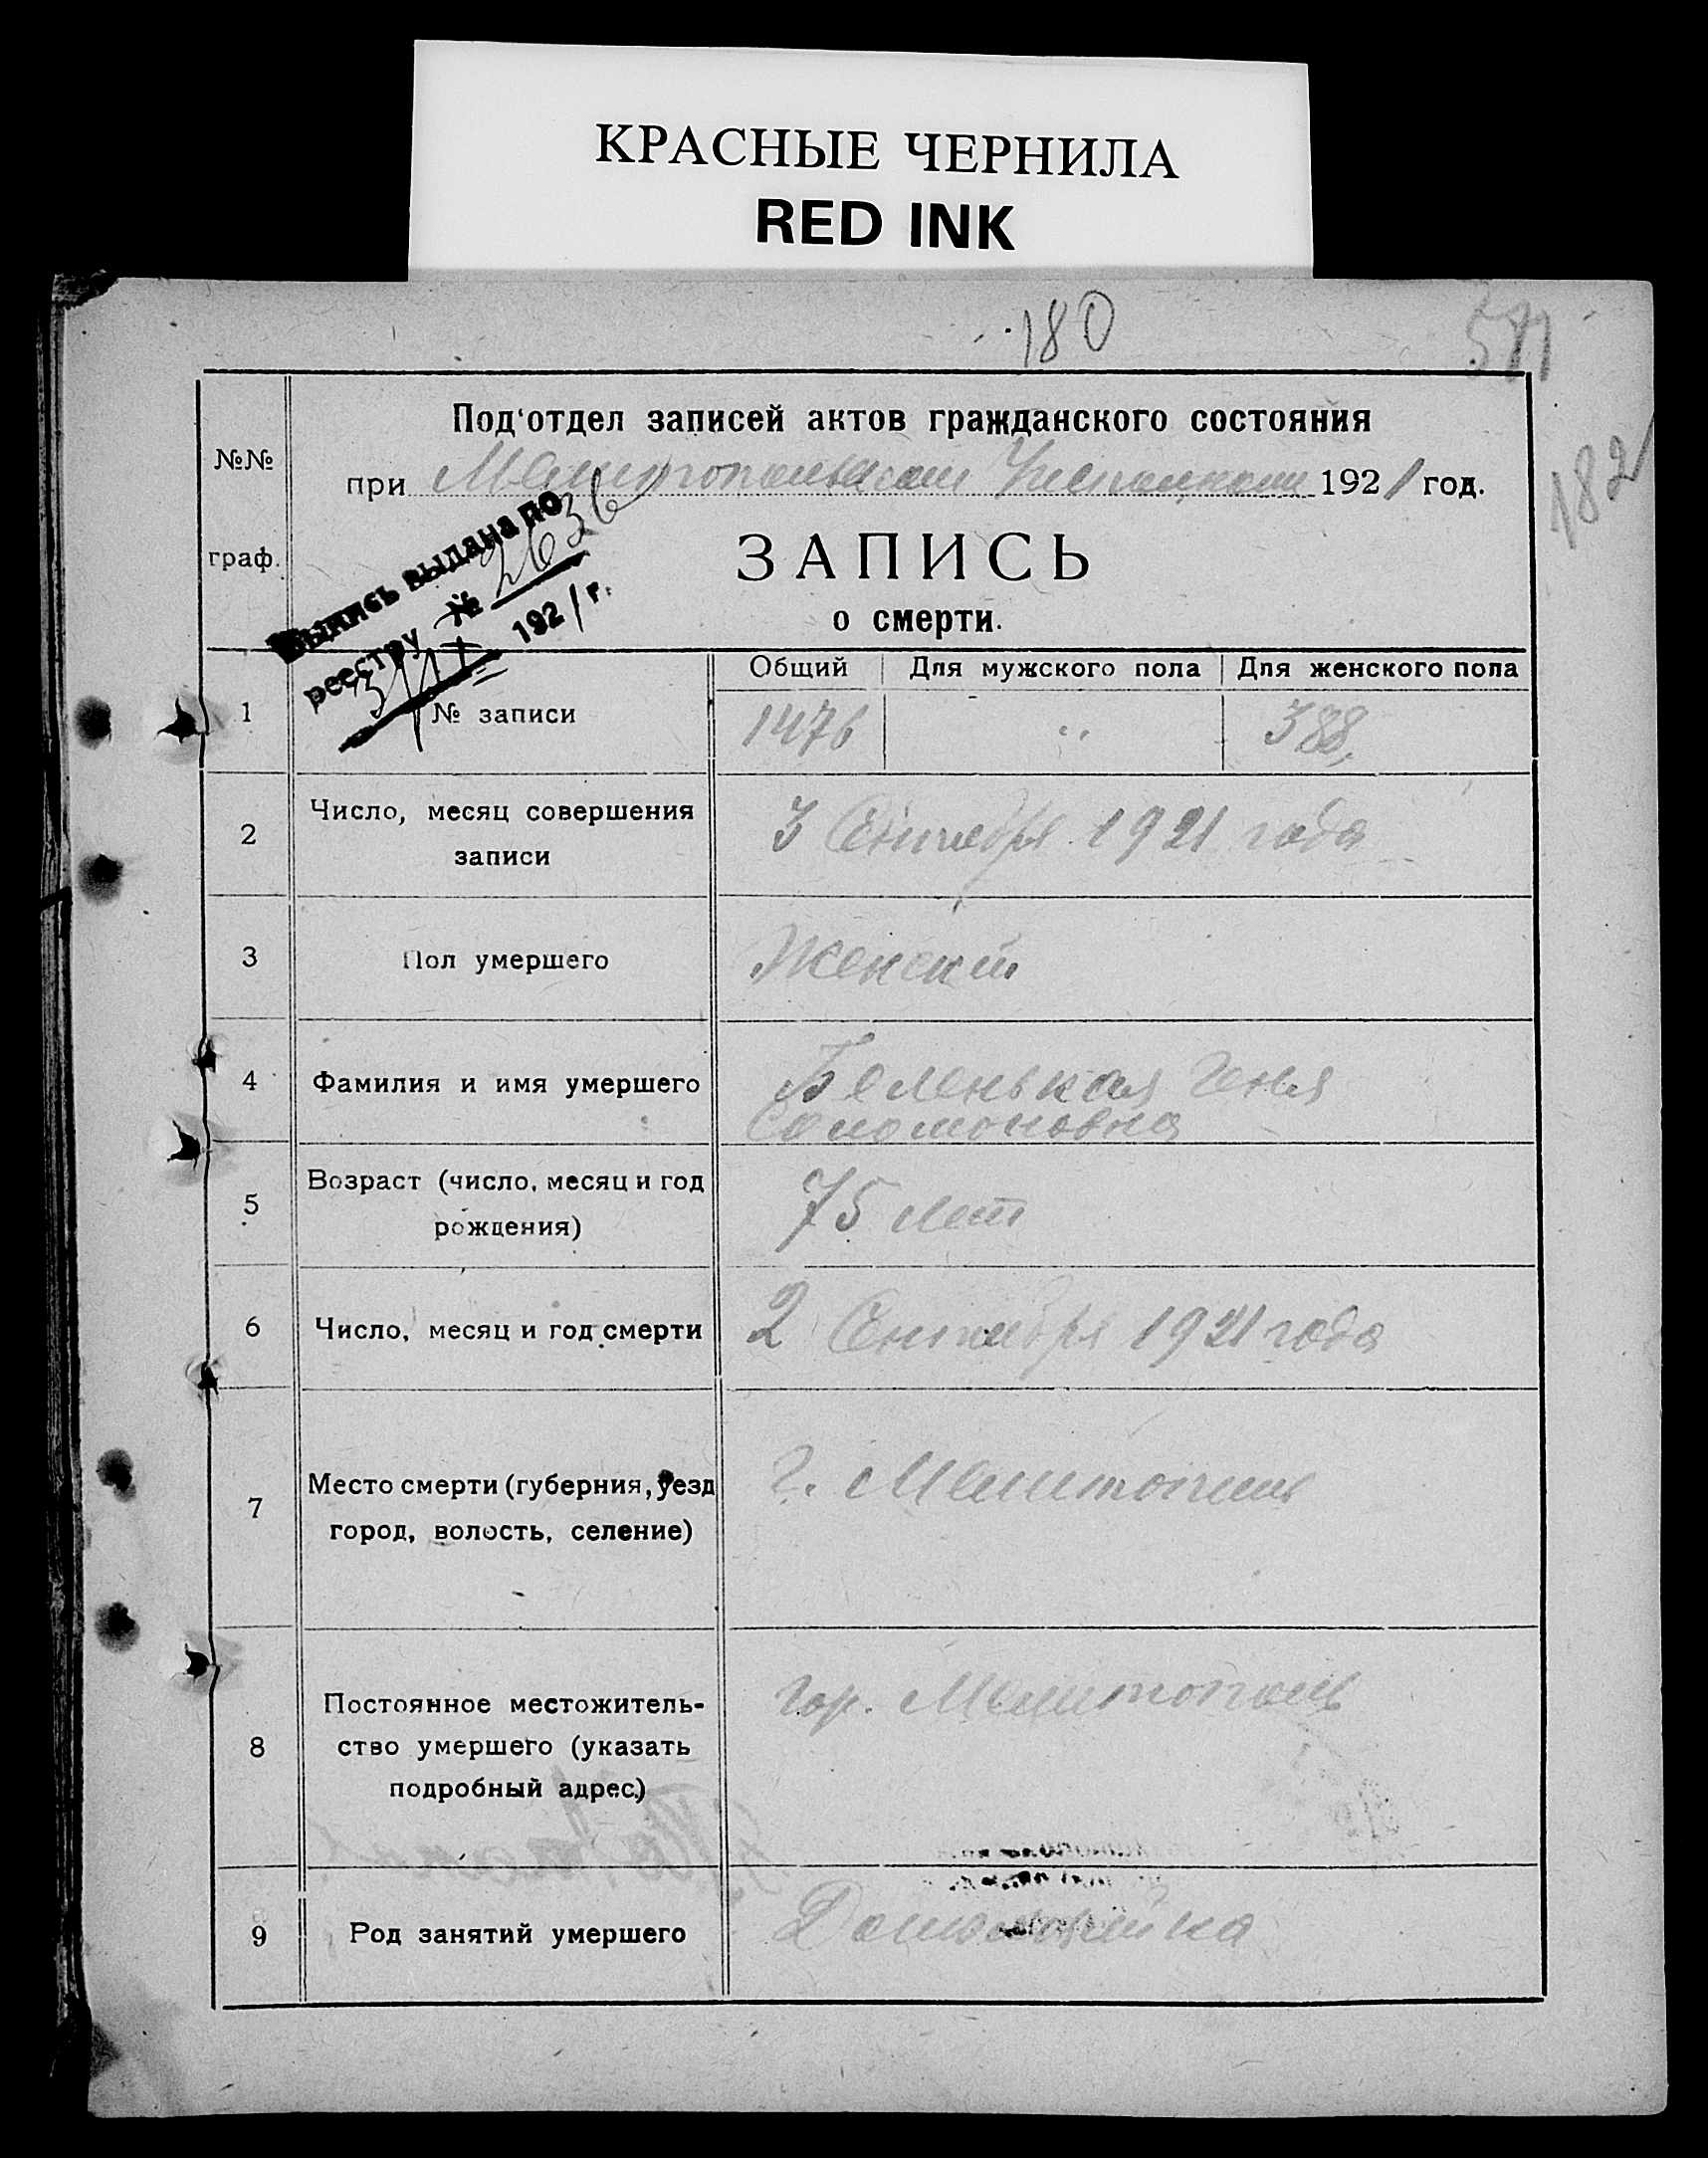 КРАСНЫЕ ЧЕРНИЛА
RED INK
180
571
182
Под'отдел записей актов гражданского состояния
№№ граф.
при Мелитопольском Уисполкоме 1921 год.
ЗАПИСЬ
о смерти.
Выпись выдана по
реестру № 2636
3/IX 1921 г.
Общий Для мужского пола Для женского пола
1 № записи 1476 " 388
2 Число, месяц совершения
записи
3 Сентября 1921 года
3 Пол умершего Женский
4 Фамилия и имя умершего Беленькая Геня
Соломоновна
5 Возраст (число, месяц и год
рождения)
75 лет
6 Число, месяц и год смерти 2 Сентября 1921 года
7 Место смерти (губерния, уезд
город, волость, селение)
г. Мелитополь
8 Постоянное местожитель-
ство умершего (указать
подробный адрес.)
гор. Мелитополь
9 Род занятий умершего Домохозяйка